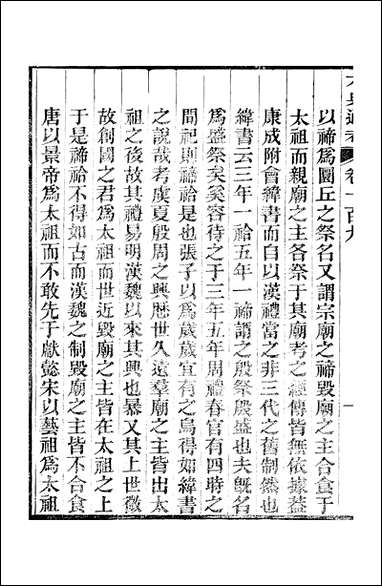 通考 卷一百九 一
以禘爲圜丘之祭名又謂宗廟之禘毀廟之主合食于
太祖而親廟之主各祭于其廟考之經傳皆無依據蓋
康成附會緯書而自以漢禮當之非三代之舊制然也
緯書云三年一祫五年一禘謂之殷祭殷盛也夫旣名
爲盛祭矣奚容待之于三年五年周禮春官有四時之
間祀則禘祫是也張子以爲歲歲宜有之烏得如緯書
之說哉考虞夏殷周之興歷世久遠羣廟之主皆出太
祖之後故其禮易明漢魏以來其興也暴又其上世微
故創國之君爲太祖而世近毀廟之主皆在太祖之上
于是禘祫不得如古而漢魏之制毀廟之主皆不合食
唐以景帝爲太祖而不敢先于獻懿宋以藝祖爲太祖